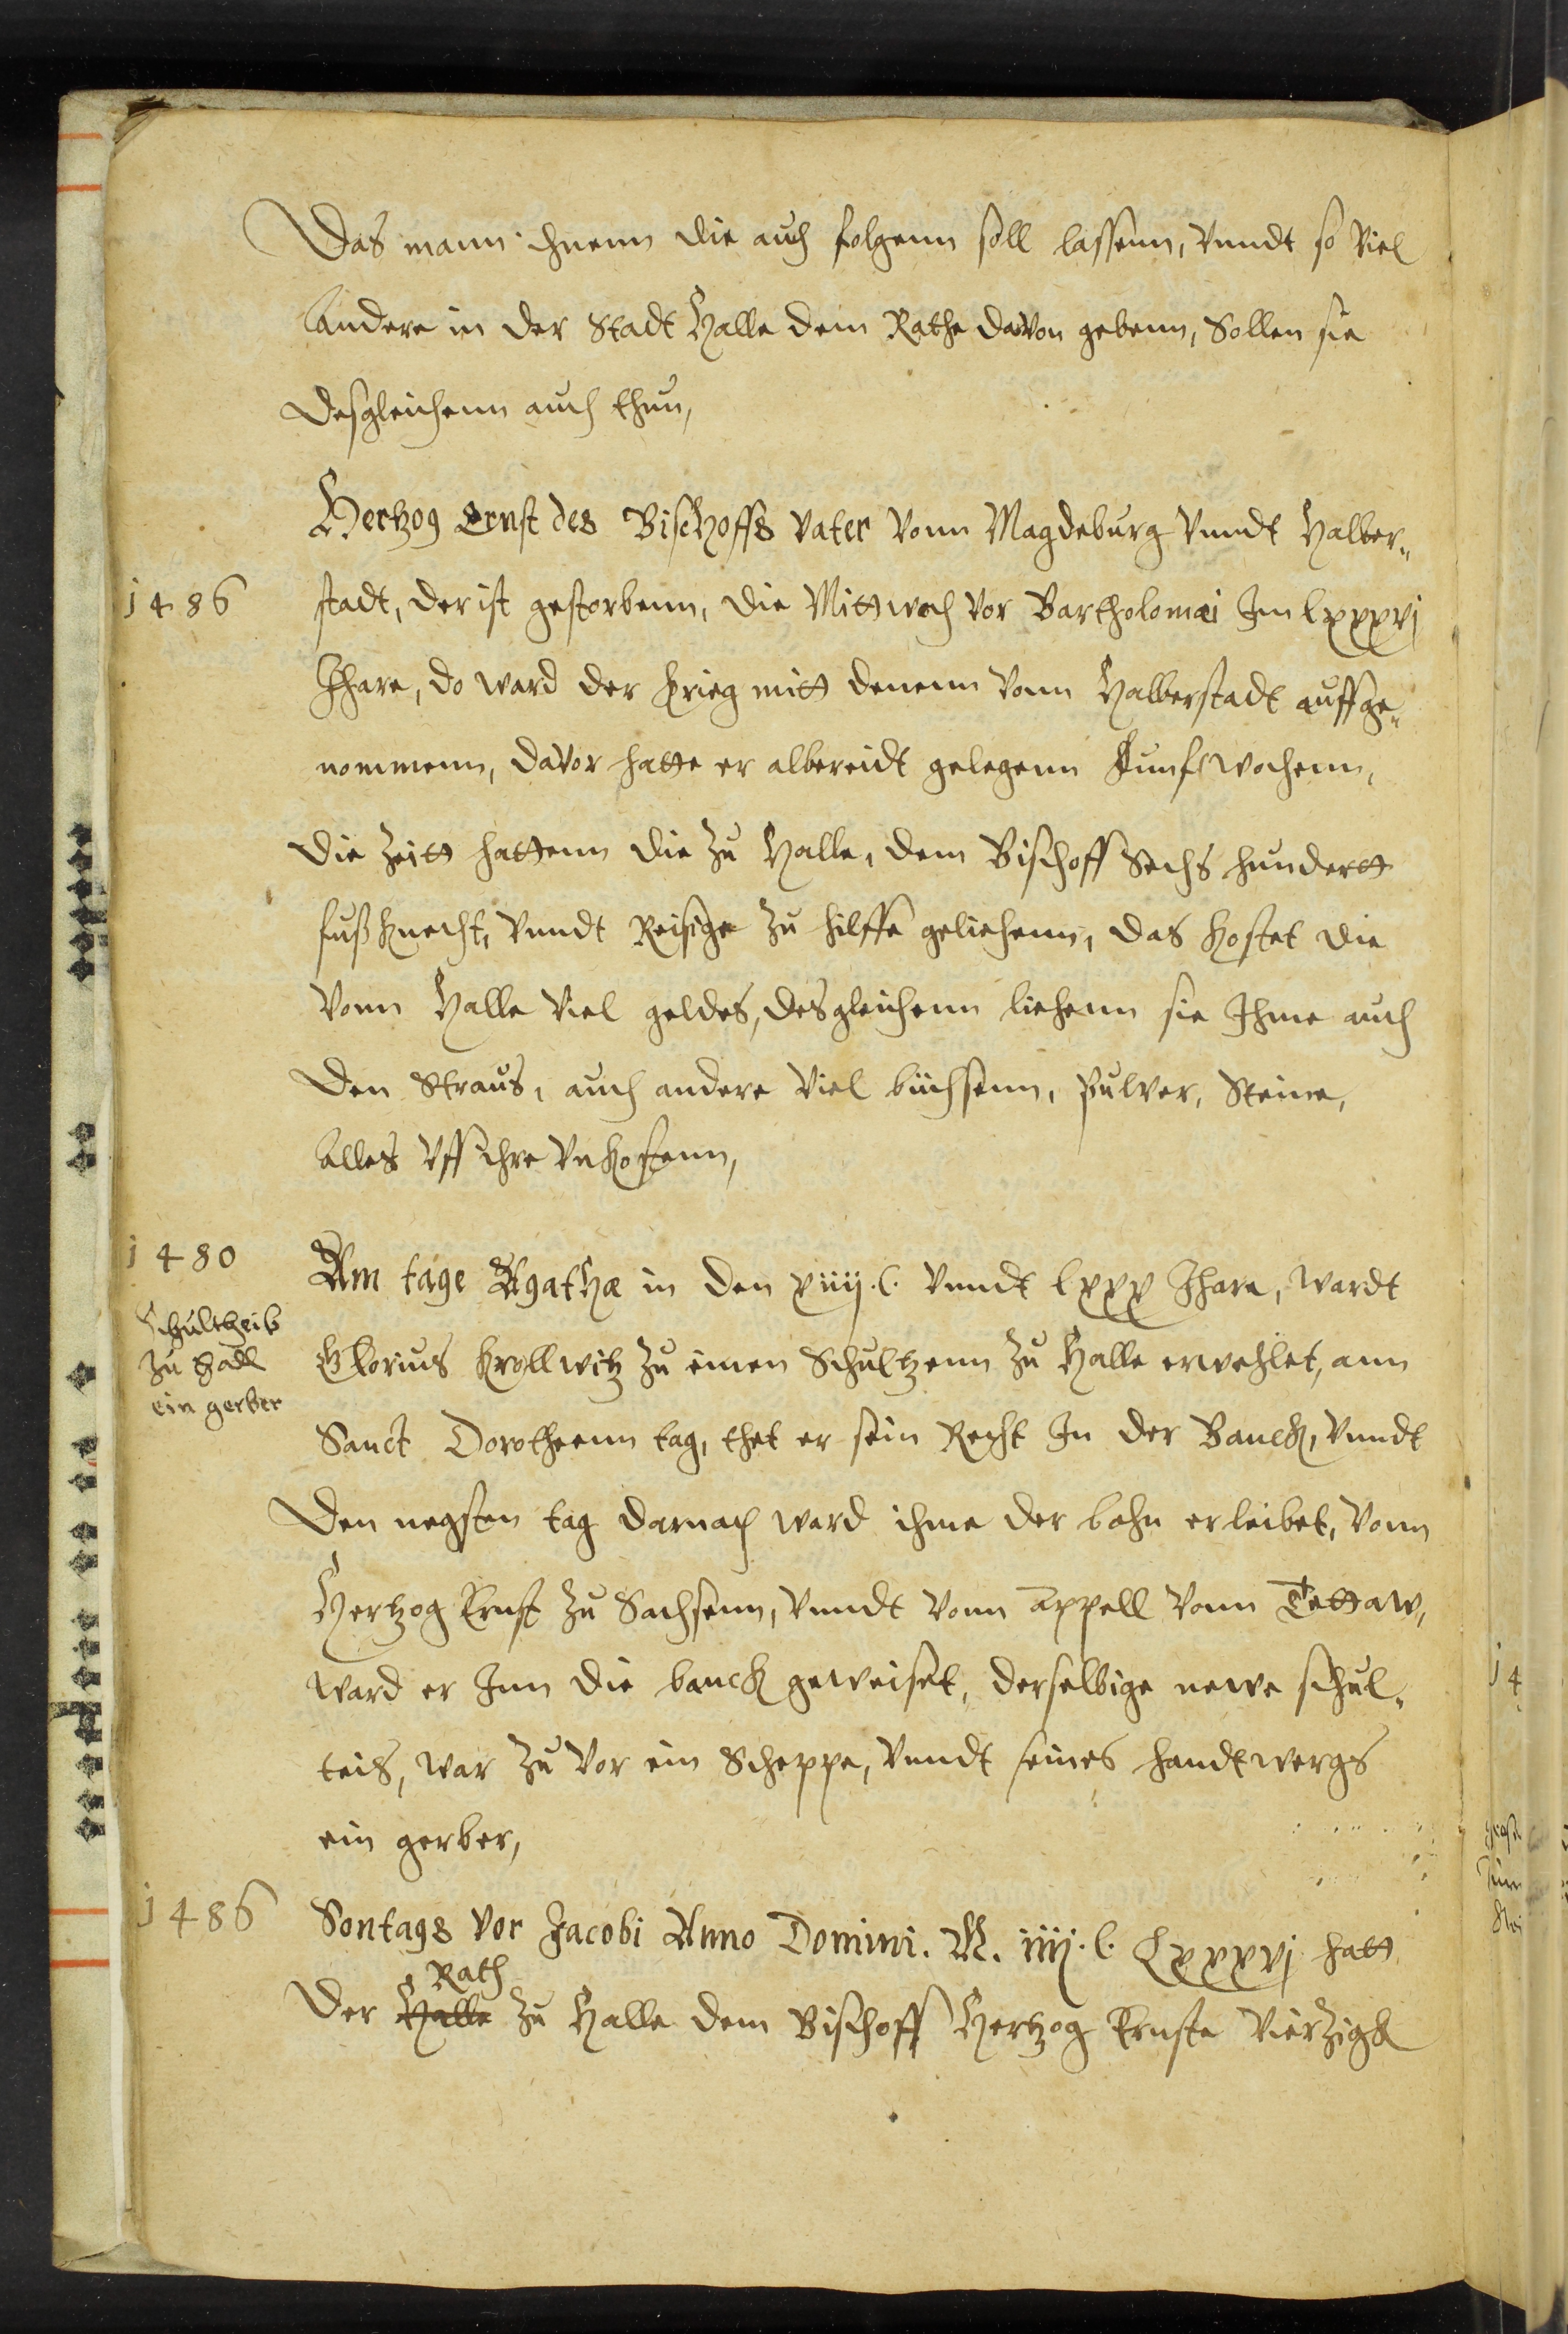 Das mann ihnenn die auch folgenn soll lassenn, Vnndt so Viel
Andere in der Stadt Halle dem Rathe davon gebenn, Sollen sie
Desgleichenn auch thun,
Hertzog Ernst des Bischoffs Vater Vonn Magdeburg Vnndt Halber„
1486
stadt, der ist gestorbenn, die Mittwoch Vor Bartholomæi Im lxxxvj
Jhare, do ward der krieg mitt denenn Vonn Halberstadt auffge„
nommenn, davor hatte er albereidt gelegenn Funf wochenn,
Die Zeitt hattenn die Zu Halle, dem Bischoff Sechs hundertt
fuß knecht, Vnndt Reisige Zu hilffe geliehenn, das kostet die
Vonn Halle Viel geldes, desgleichenn liehenn sie Ihme auch
Den Straus, auch andere Viel büchsenn, Pulver, Steine,
Alles Vff ihre Vnkostenn,
1480
Am tage Agathæ in den xiiij.C. Vnndt lxxx Jhare, wardt
Schultheis
zu Hall
ein gerber
Glorius Krollwitz Zu einen Schultzenn Zu Halle erwehlet, ann
Sanct Dorotheenn tag, thet er sein Recht In der Banck, Vnndt
Den negsten tag darnach ward ihme der bahn erleibet, Vonn
Hertzog Ernst Zu Sachsenn, Vnndt Vonn Appell Vonn Tettaw,
Ward er Inn die banck geweiset, derselbige newe schul„
teis, war Zu Vor ein Scheppe, Vnndt seines handtwergs
ein gerber,
1486
Sontags Vor Jacobi Anno Domini. M. iiij.C. Lxxxvj hatt
Rath
Der Halle Zu Halle dem Bischoff Hertzog Ernste Vierzigk
14